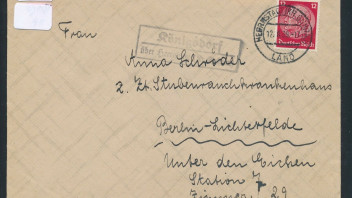 Frau
Königsdorf
über
HERRNSTADT
LAND
12
Deutsches Reich
Anna Schroder
z. Zt. Stubenrauchkrankenhaus
Berlin-Lichterfelde
Unter den Eichen
Station 7
Zimmer 29